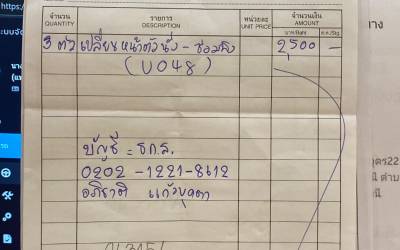 จำนวน
QUANTITY
รายการ
DESCRIPTION
หน่วยละ
UNIT PRICE
จำนวนเงิน
AMOUNT
บาท/Baht
ส.ต./Stg.
3 ตัว เปลี่ยนหน้าตัวนั่ง - ซ่อมโครง 2,500 -
(U048)
บัญชี = ธกส.
0202 - 1221-8112
อภิชาติ แก้วบุดตา
ระบบจัด
ทาง